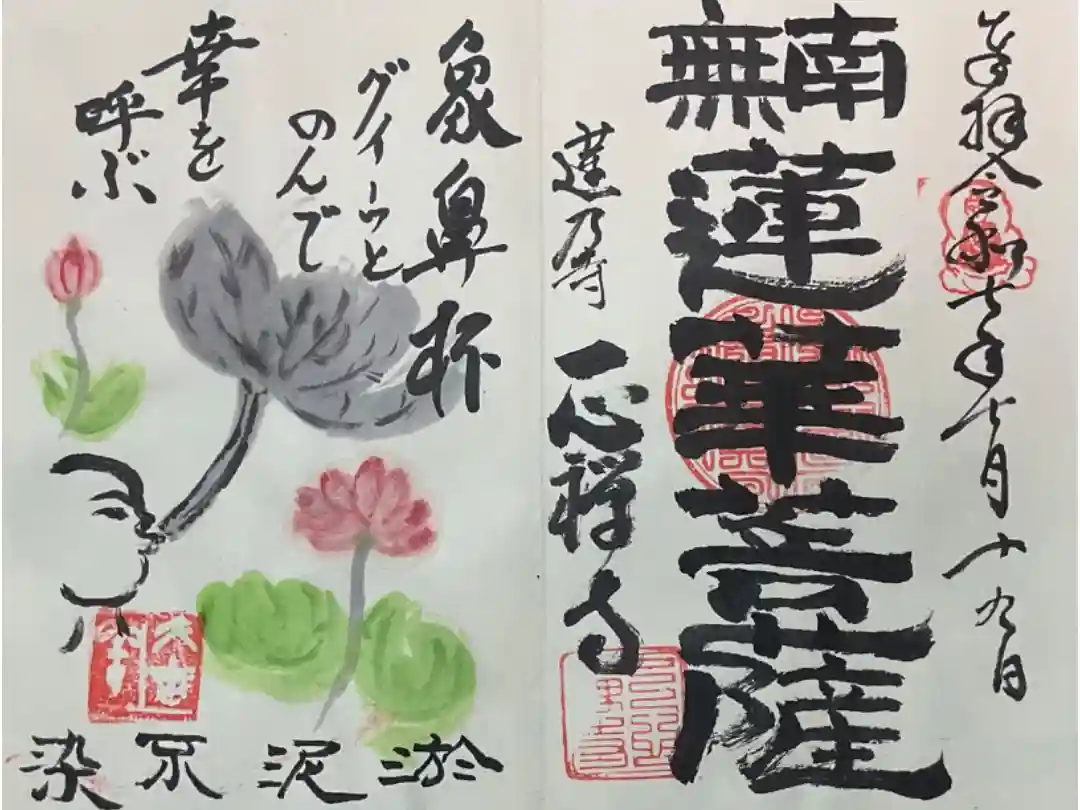 奉拝 令和七年七月十九日
南無蓮華菩薩
蓮乃寺
一心禅寺
象鼻杯
グイーッと
のんで
幸を
呼ぶ
淤泥不染